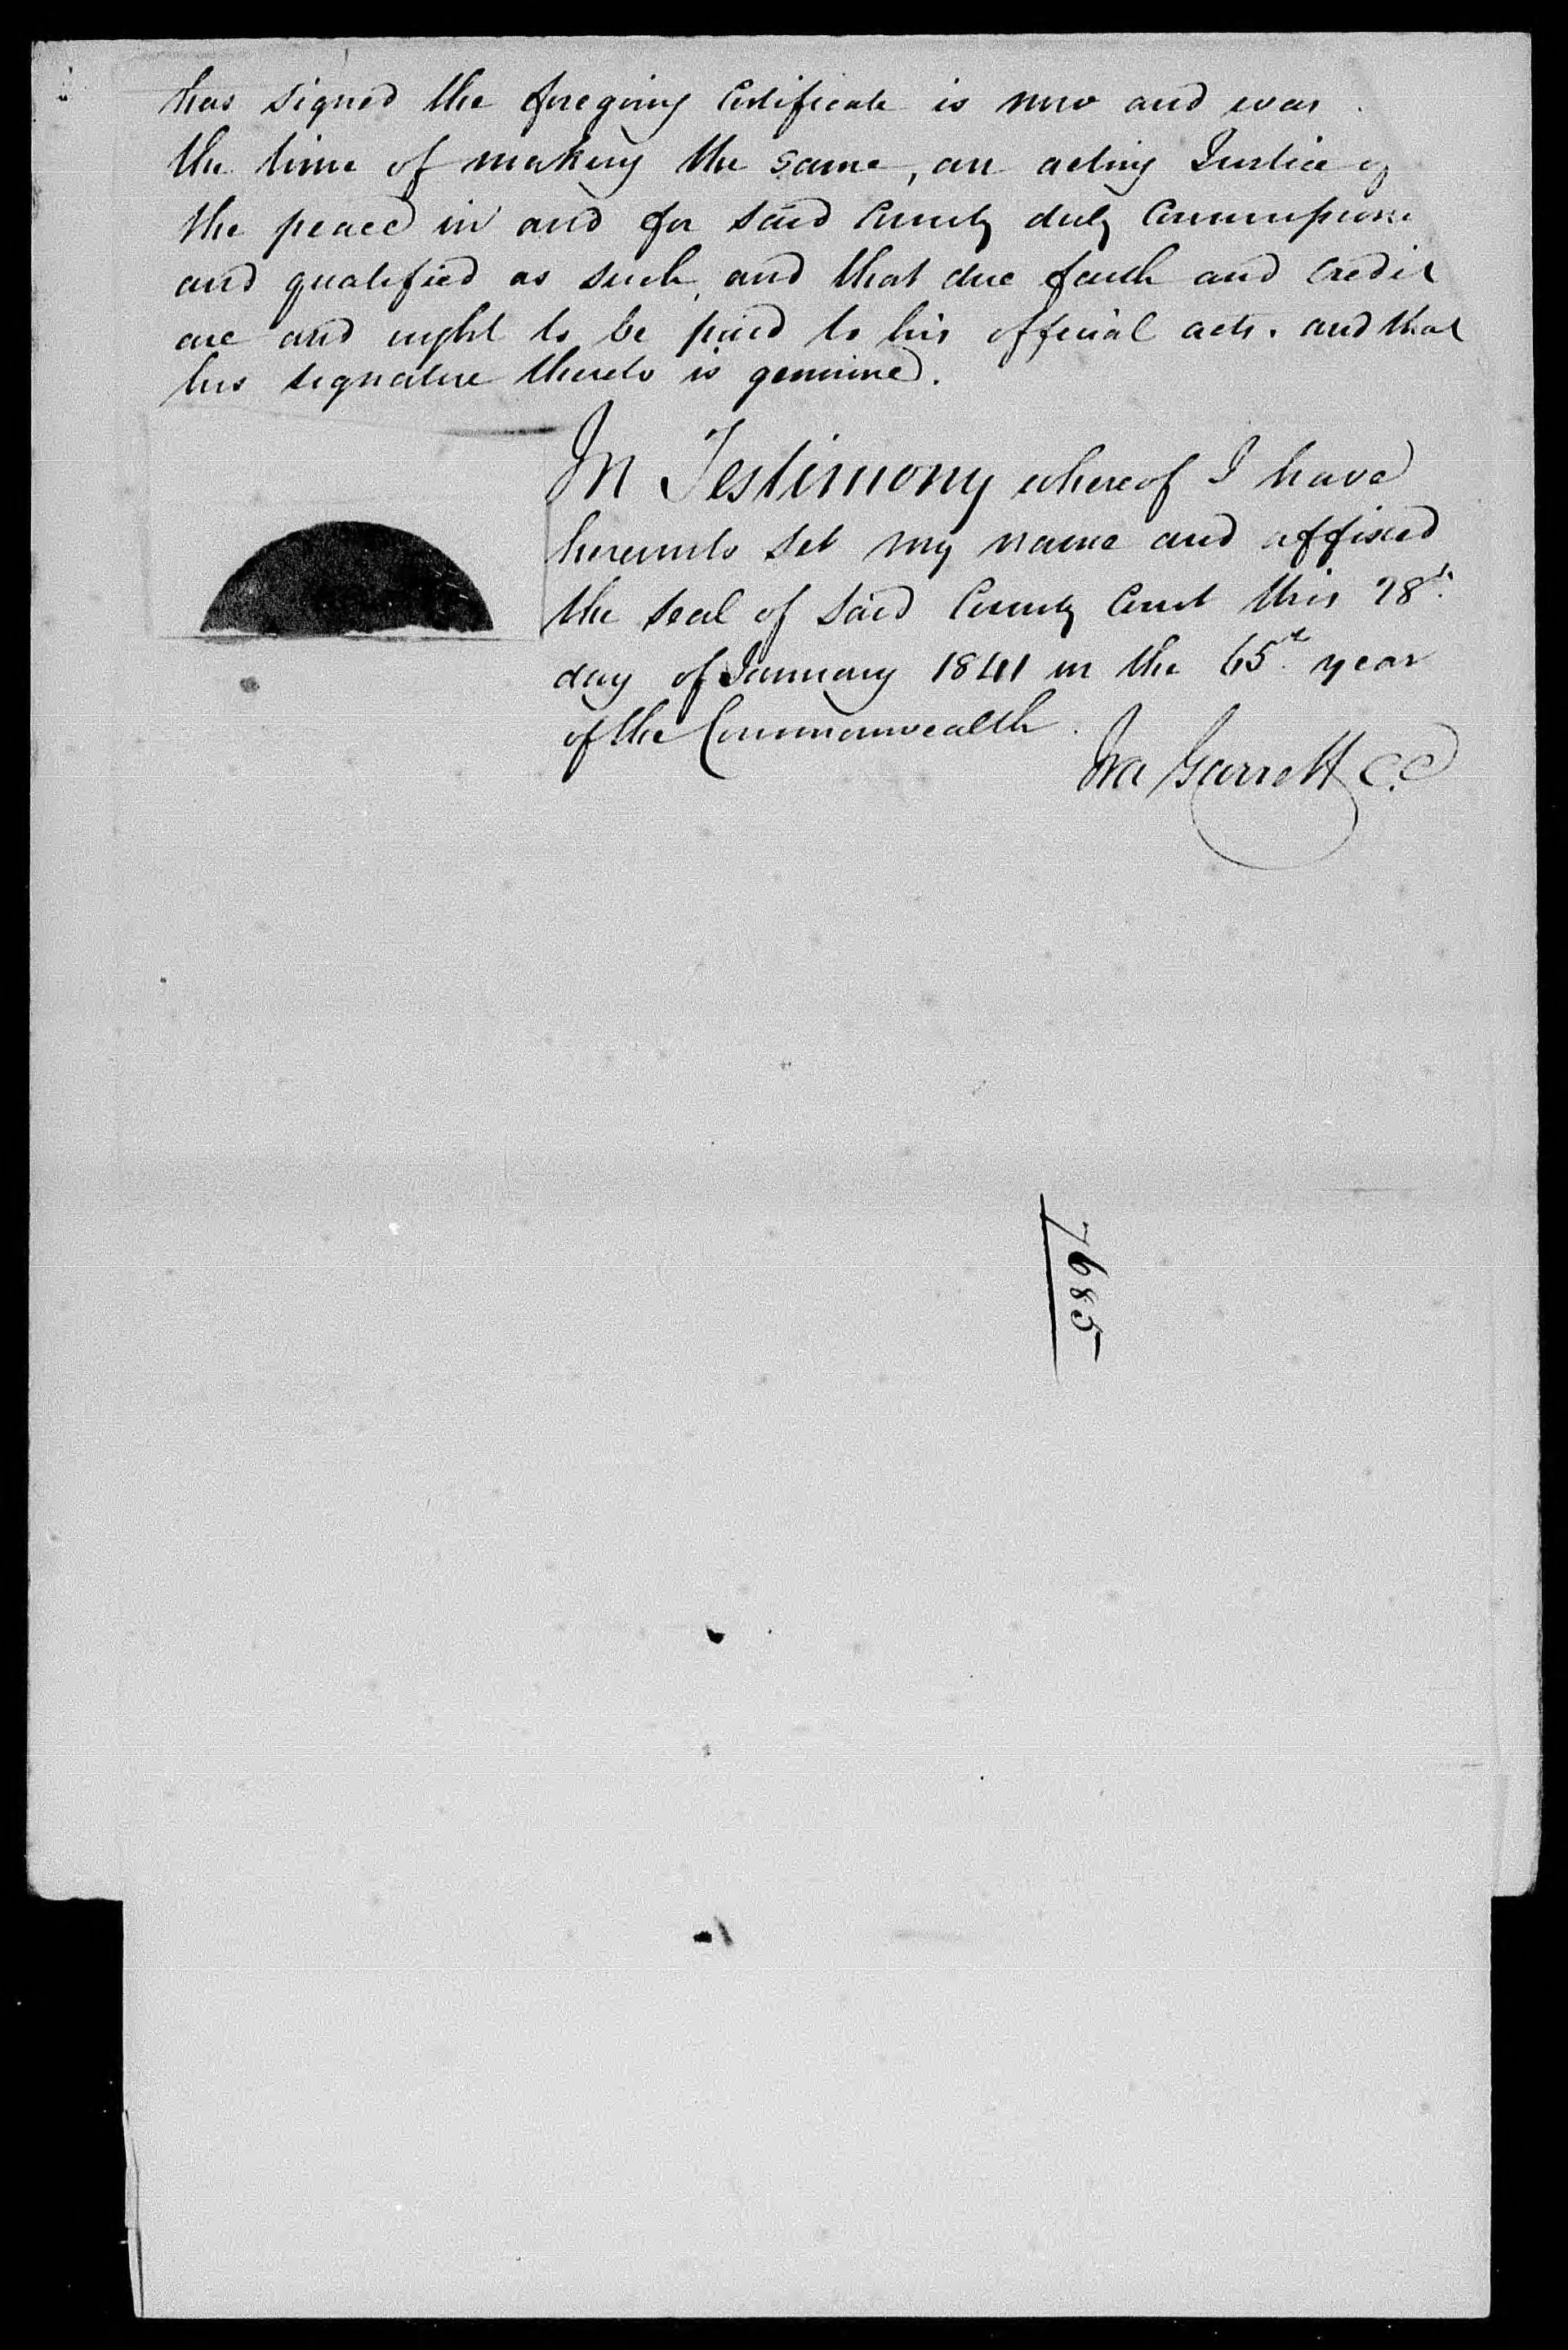 has signed the foregoing Certificate is now and was
the time of making the same, an acting Justice of
the peace in and for said County duly Commissione
and qualified as such, and that due faith and credit
are and ought to be paid to his official acts. and that
his signature thereto is genuine.
In Testimony whereof I have
hereunto set my name and affixed
the seal of said County Court this 28th
day of January 1841 in the 65th year
of the Commonwealth.
Ira Garrett C.C
7685